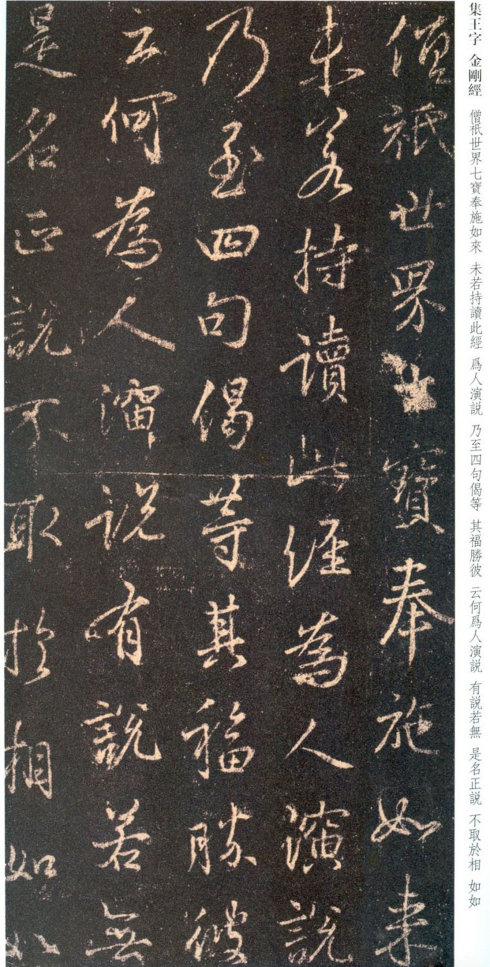 集王字 金剛經 僧祇世界七寶奉施如來 未若持讀此經 爲人演説 乃至四句偈等 其福勝彼 云何爲人演説 有説若無 是名正説 不取於相 如如
僧祇世界七寶奉施如来
未若持讀此經為人演說
乃至四句偈等其福勝彼
云何為人演説有説若無
是名正說不取於相如如